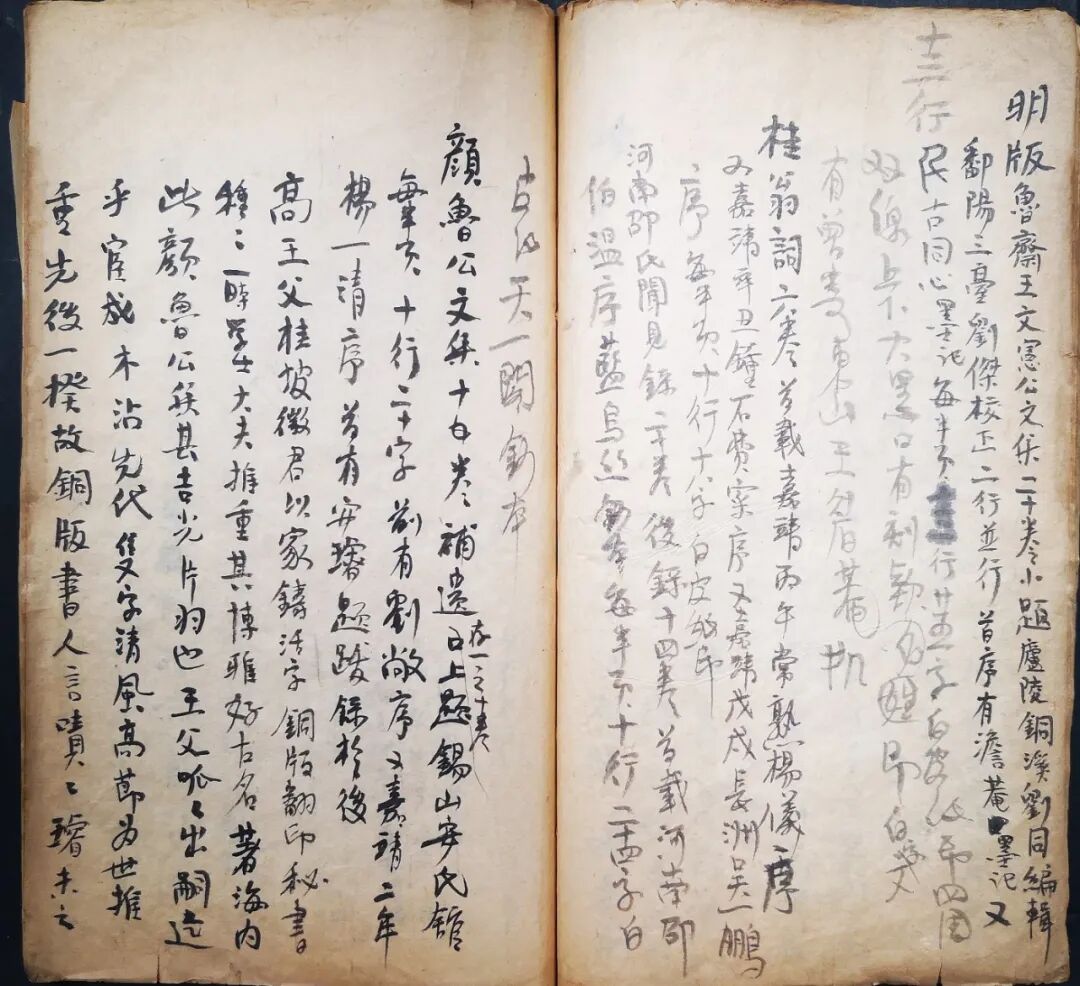 明版魯齋王文憲公文集二十卷小題廬陵銅溪劉同編輯
鄱陽三臺劉傑校正二行並行首序有澹菴墨記又
十三行
民古同心墨記每半頁行廿五字白皮紙印四周
双線上下大黑口有刻欵名姓印白文
有曾
桂翁詞六卷首載嘉靖丙午常熟楊儀序
又嘉靖辛丑鍾石費寀序又嘉靖戊戌長洲吳一鵬
序每半頁十行十八字白皮紙印
河南邵氏聞見錄二十卷後錄十四卷首載河南邵
伯溫序藍烏丝每半頁十行二十四字白
皮紙天一閣鈔本
顏魯公文集十五卷補遺口上題錫山安氏館
存一之十卷
每半頁十行二十字前有劉敞序又嘉靖二年
楊一清序首有安璿題跋錄於後
高王父桂坡徵君以家鑄活字銅版翻印秘書
種々一時學士大夫推重其博雅好古名著海内
此顏魯公集其吉光片羽也王父呱々出嗣迄
乎宦成木沾先代隻字清風高節为世推
重先後一揆故銅版書人言嘖々璿未之